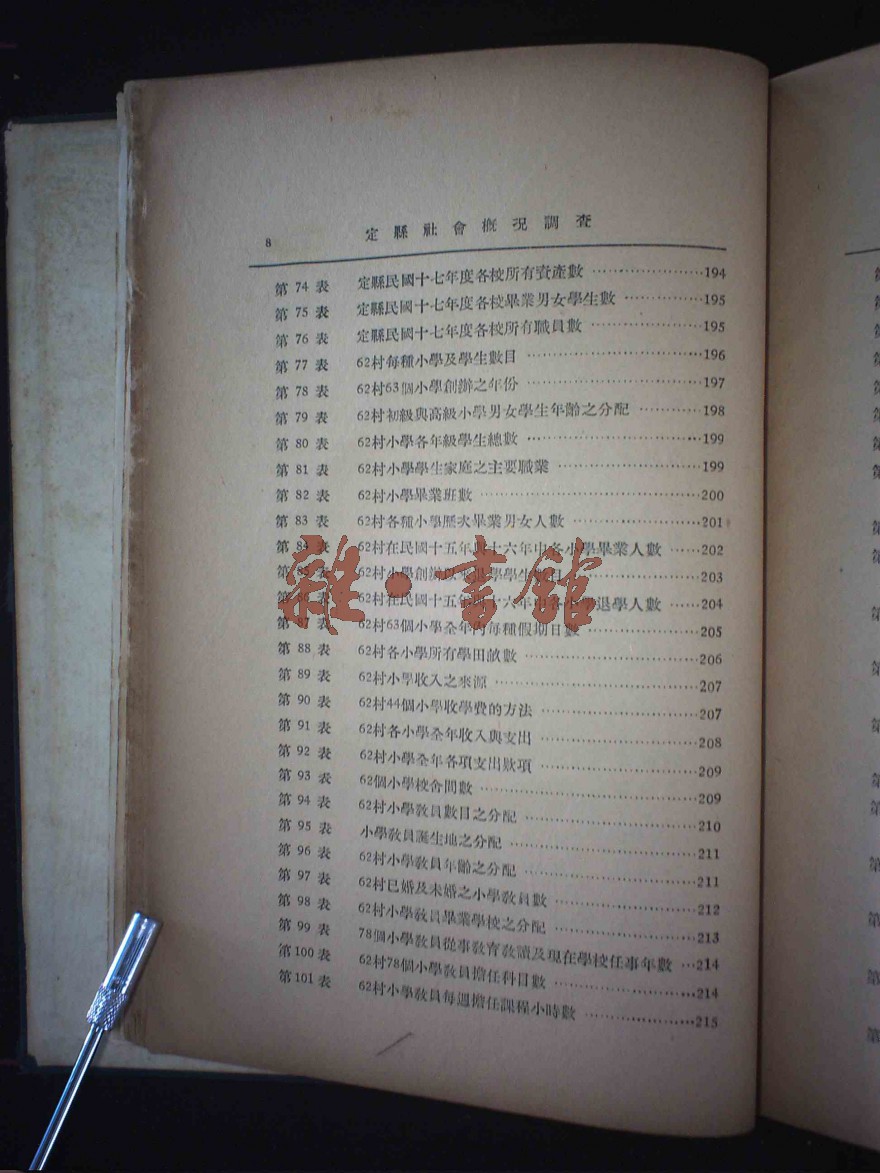 8 定縣社會概況調查
第74表 定縣民國十七年度各校所有資產數 194
第75表 定縣民國十七年度各校畢業男女學生數 195
第76表 定縣民國十七年度各校所有職員數 195
第77表 62村每種小學及學生數目 196
第78表 62村63個小學創辦之年份 197
第79表 62村初級與高級小學男女學生年齡之分配 198
第80表 62村小學各年級學生總數 199
第81表 62村小學學生家庭之主要職業 199
第82表 62村小學畢業班數 200
第83表 62村各種小學歷次畢業男女人數 201
第84表 62村在民國十五年與十六年中各小學畢業人數 202
第85表 62村小學創辦以來退學學生數目 203
第86表 62村在民國十五年與十六年中各小學退學人數 204
第87表 62村63個小學全年內每種假期日數 205
第88表 62村各小學所有學田畝數 206
第89表 62村小學收入之來源 207
第90表 62村44個小學收學費的方法 207
第91表 62村各小學全年收入與支出 208
第92表 62村小學全年各項支出欵項 209
第93表 62個小學校舍間數 209
第94表 62村小學敎員數目之分配 210
第95表 小學敎員誕生地之分配 211
第96表 62村小學敎員年齡之分配 211
第97表 62村已婚及未婚之小學敎員數 212
第98表 62村小學敎員畢業學校之分配 213
第99表 78個小學敎員從事敎育敎讀及現在學校任事年數 214
第100表 62村78個小學敎員擔任科目數 214
第101表 62村小學敎員每週擔任課程小時數 215
雜·書館